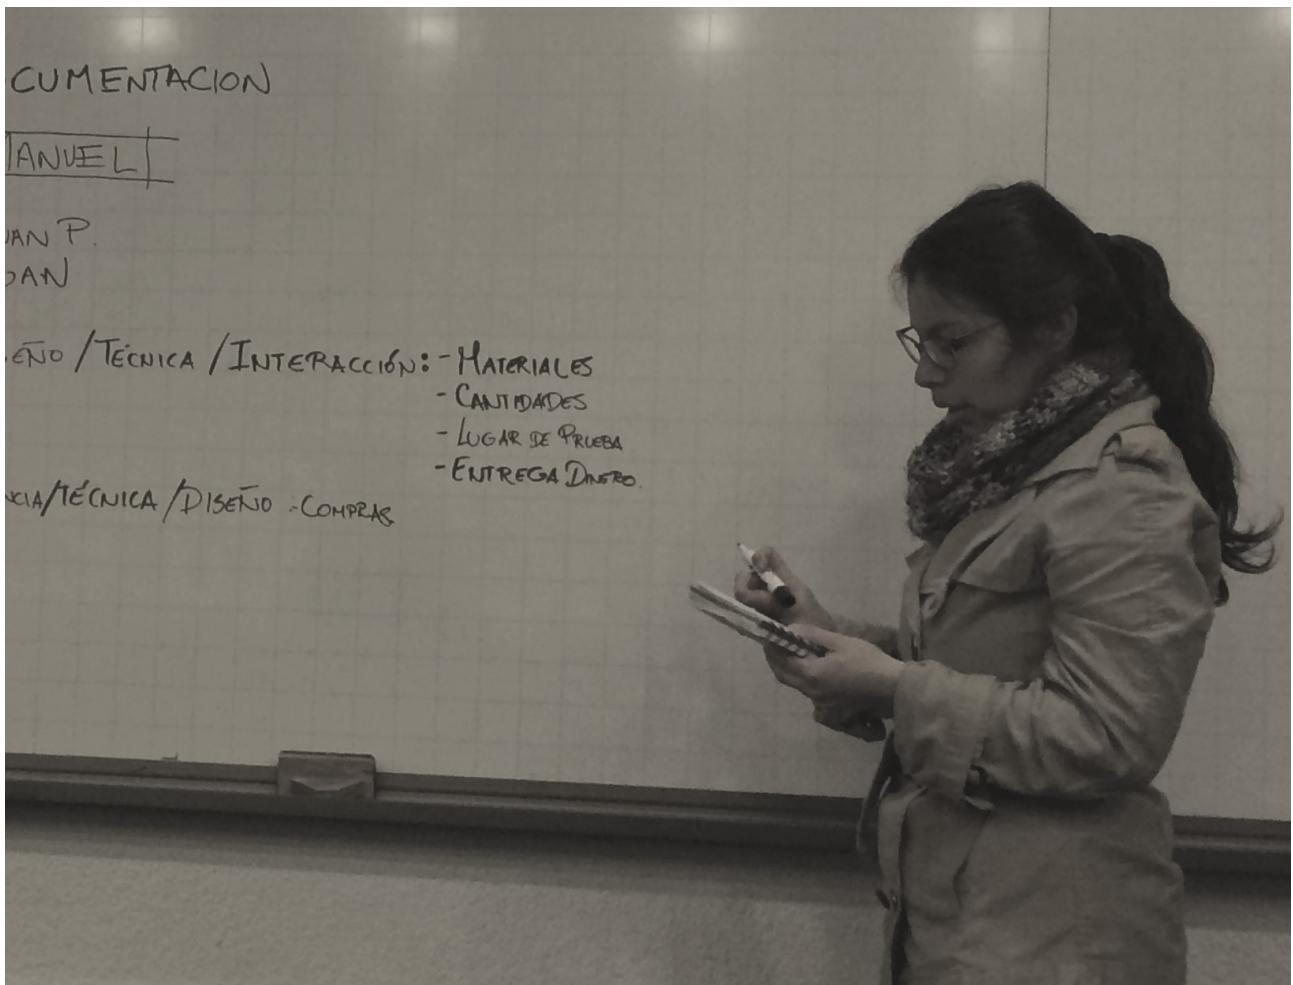 CUMENTACION
ANUEL
UAN P.
OAN
EÑO / TÉCNICA / INTERACCIÓN: - MATERIALES
- CANTIDADES
- LUGAR DE PRUEBA
- ENTREGA DINERO.
NCIA/TÉCNICA / DISEÑO :- COMPRAS